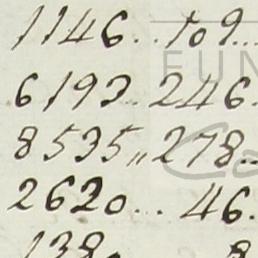 1146..109...
6193..246.
8535,,278..
2620... 46.
138.